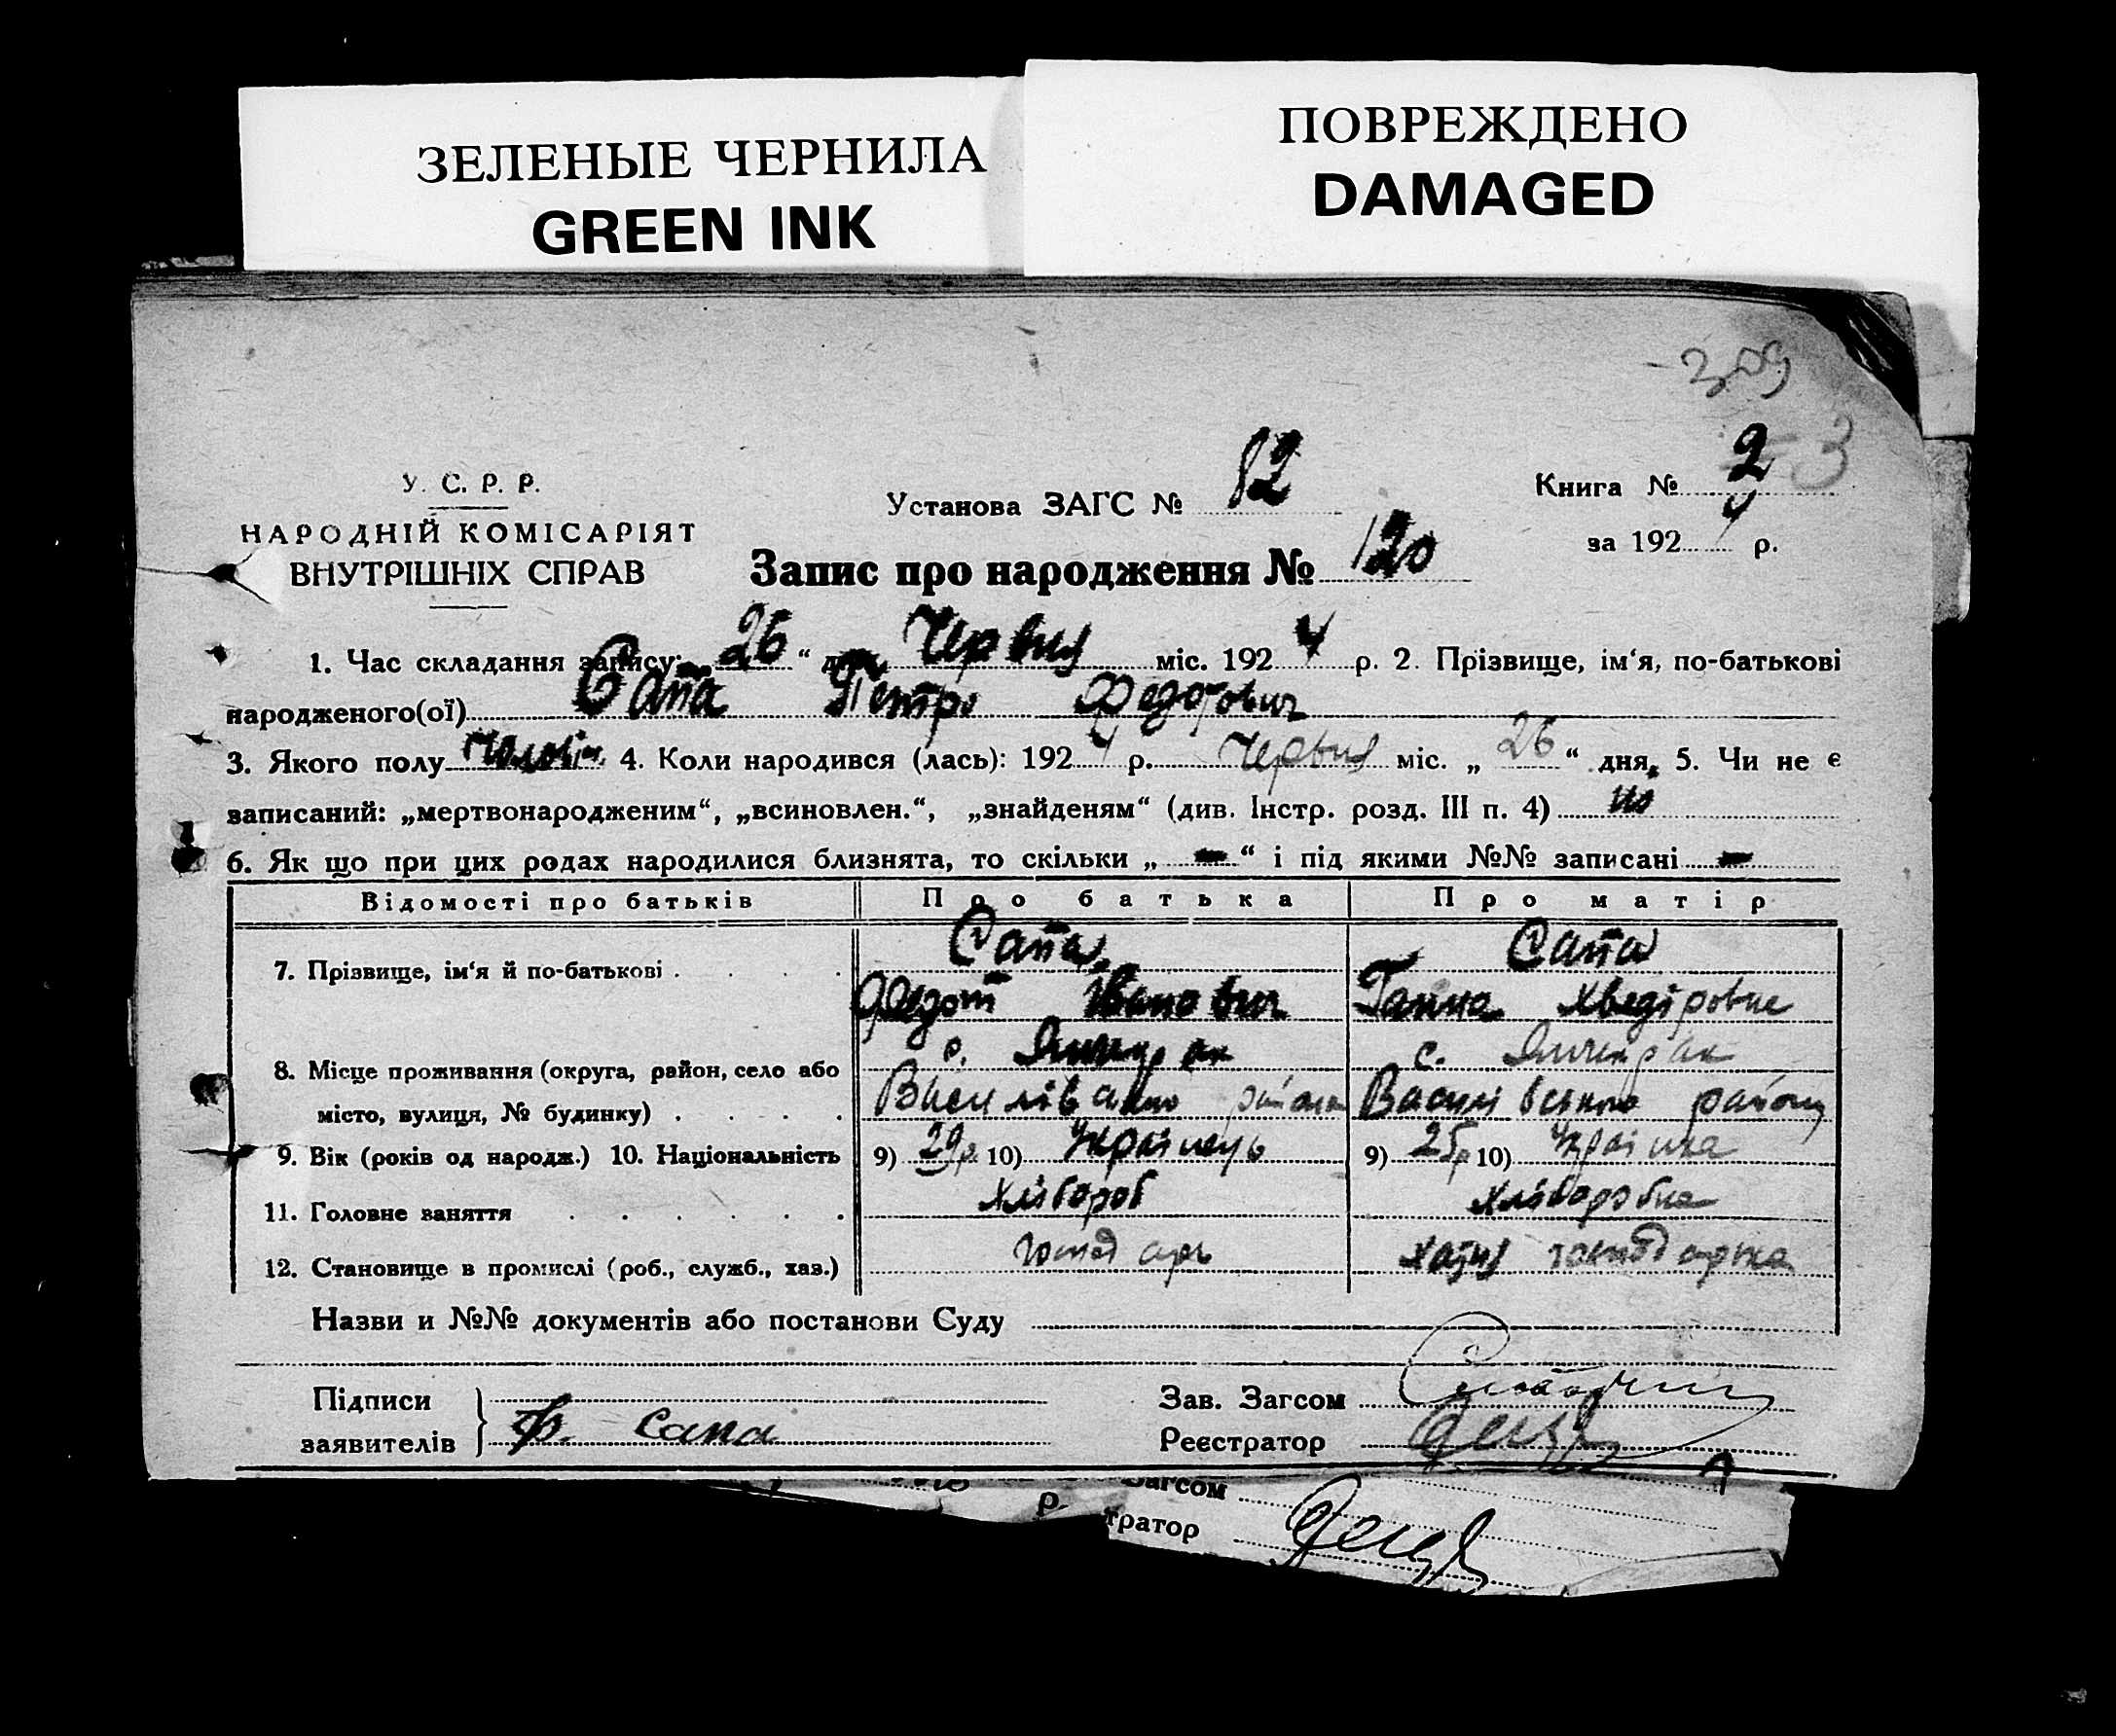 ЗЕЛЕНЫЕ ЧЕРНИЛА
GREEN INK
ПОВРЕЖДЕНО
DAMAGED
309
3
У. С. Р. Р.
НАРОДНІЙ КОМІСАРІЯТ
ВНУТРІШНІХ СПРАВ
Установа ЗАГС № 82
Книга № 2
за 1924 р.
Запис про народження № 120
1. Час складання запису: 26 “ дня Червня міс. 1924 р. 2. Прізвище, ім‘я, по-батькові
народженого(ої) Сапа Петро Федотович
3. Якого полу чоловіч. 4. Коли народився (лась): 1924 р. Червня міс. „ 26 “ дня, 5. Чи не є
записаний: „мертвонародженим“, „всиновлен.“, „знайденям“ (див. Інстр. розд. III п. 4)
6. Як що при цих родах народилися близнята, то скільки „ — “ і під якими №№ записані —
Відомості про батьків Про батька Про матір
7. Прізвище, ім‘я й по-батькові . . . . Сапа Сапа
Федот Іванович Ганна Хведіровна
8. Місце проживання (округа, район, село або с. Янчекрак с. Янчекрак
місто, вулиця, № будинку) . . . . Василівсько района Василівського району
9. Вік (років од народж.) 10. Національність 9) 29р. 10) Українець 9) 25р 10) Українка
11. Головне заняття . . . . . . Хлібороб Хліборобка
12. Становище в промислі (роб., служб., хаз.) господарь хатня господарка
Назви и №№ документів або постанови Суду
Підписи
заявителів
Ф. Сапа
Зав. Загсом
Реєстратор
Загсом
р.
тратор